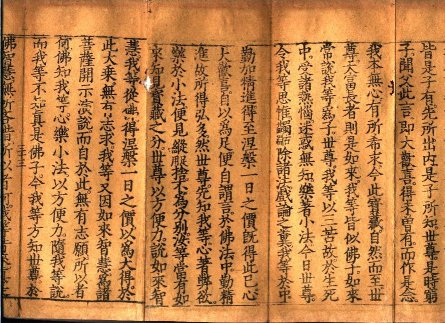 皆是子有先所出內是子所知世尊是時窮
子聞父此言即大歡喜得未曾有而作是念
我本無心有所希求今此寶藏自然而至世
尊大富長者則是如來我等皆似佛子如來
常說我等為子世尊我等以三苦故於生死
中受諸熱惱迷惑無知樂著小法今日世尊
令我等思惟蠲除諸法戲論之糞我等於中
勤加精進得至涅槃一日之價既得此已心
大歡喜自以為足便自謂言於佛法中勤精
進故所得弘多然世尊先知我等心著弊欲
樂於小法便見縱捨不為分別汝等當有如
來知見寶藏之分世尊以方便力說如來智
慧我等從佛得涅槃一日之價以為大得於
此大乘無有志求我等又因如來智慧為諸
菩薩開示演說而自於此無有志願所以者
何佛知我等心樂小法以方便力隨我等說
而我等不知真是佛子今我等方知世尊於
佛智慧無所吝惜所以者何我等